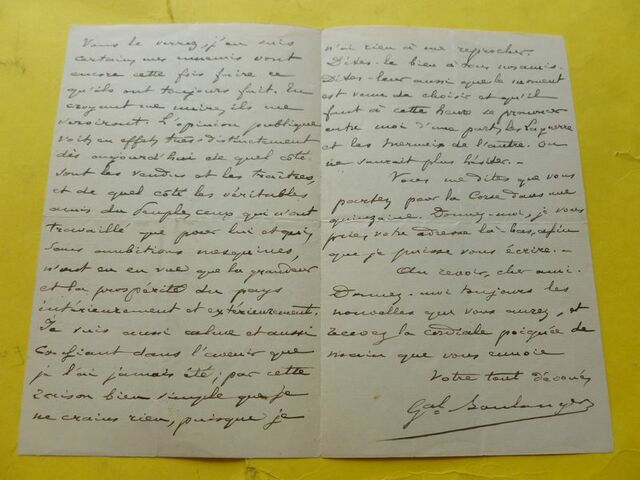 Vous le verrez, j'en suis
certain, mes ennemis vont
encore cette fois faire ce
qu'ils ont toujours fait. En
croyant me nuire, ils me
serviront. L'opinion publique
voit, en effet, très-distinctement
dès aujourd'hui de quel côté
sont les vendus et les traîtres,
et de quel côté les véritables
amis du Peuple, ceux qui n'ont
travaillé que pour lui et qui,
sans ambitions mesquines,
n'ont eu en vue que la grandeur
et la prospérité du pays
intérieurement et extérieurement.
Je suis aussi calme et aussi
confiant dans l'avenir que
je l'ai jamais été; par cette
raison bien simple que je
ne crains rien, puisque je
n'ai rien à me reprocher.
Dites-le bien à tous nos amis.
Dites-leur aussi que le moment
est venu de choisir et qu'il
faut à cette heure se prononcer
entre moi d'une part, les Laguerre
et les Mermeix de l'autre. On
ne saurait plus hésiter. —
Vous me dites que vous
partez pour la Corse dans une
quinzaine. Donnez-moi, je vous
prie, votre adresse là-bas, afin
que je puisse vous écrire. —
Au revoir, cher ami.
Donnez-moi toujours les
nouvelles que vous aurez, et
recevez la cordiale poignée de
main que vous envoie
Votre tout dévoué
Gal Boulanger